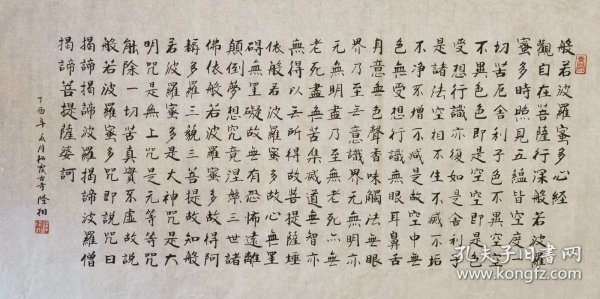 般若波羅蜜多心經
觀自在菩薩行深般若波羅
蜜多時照見五蘊皆空度一
切苦厄舍利子色不異空空
不異色色即是空空即是色
受想行識亦復如是舍利子
是諸法空相不生不滅不垢
不淨不增不減是故空中無
色無受想行識無眼耳鼻舌
身意無色聲香味觸法無眼
界乃至无意識界无無明亦
元無明盡乃至無老死亦無
老死盡無苦集滅道無智亦
無得以無所得故菩提薩埵
依般若波羅蜜多故心無罣
碍無罣礙故無有恐怖遠離
顛倒夢想究竟涅槃三世諸
佛依般若波羅蜜多故得阿
耨多羅三藐三菩提故知般
若波羅蜜多是大神咒是大
明咒是無上咒是元等等咒
能除一切苦真實不虛故說
般若波羅蜜多咒即說咒曰
揭諦揭諦波羅揭諦波羅僧
揭諦菩提薩婆訶
丁酉年 月 寺隆相
孔夫子旧书网
www.kongfz.com